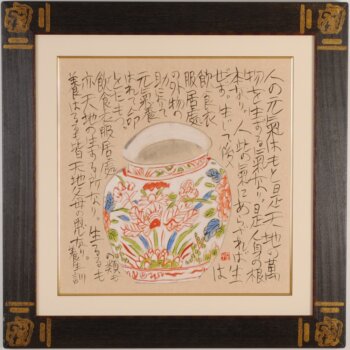 人の元氣はもと是天地の萬
物を生ずる氣なり是人身の根
本なり人此の氣にあらざれば生
ぜず。生じて後は
飲食衣
服居處
の外物の
助によりて
元氣養
はれて命
をたもつ
飲食衣服居處の類も
亦天地の生ずる所なり。生るるも
養はるるも皆天地父母の恩なり。養生訓